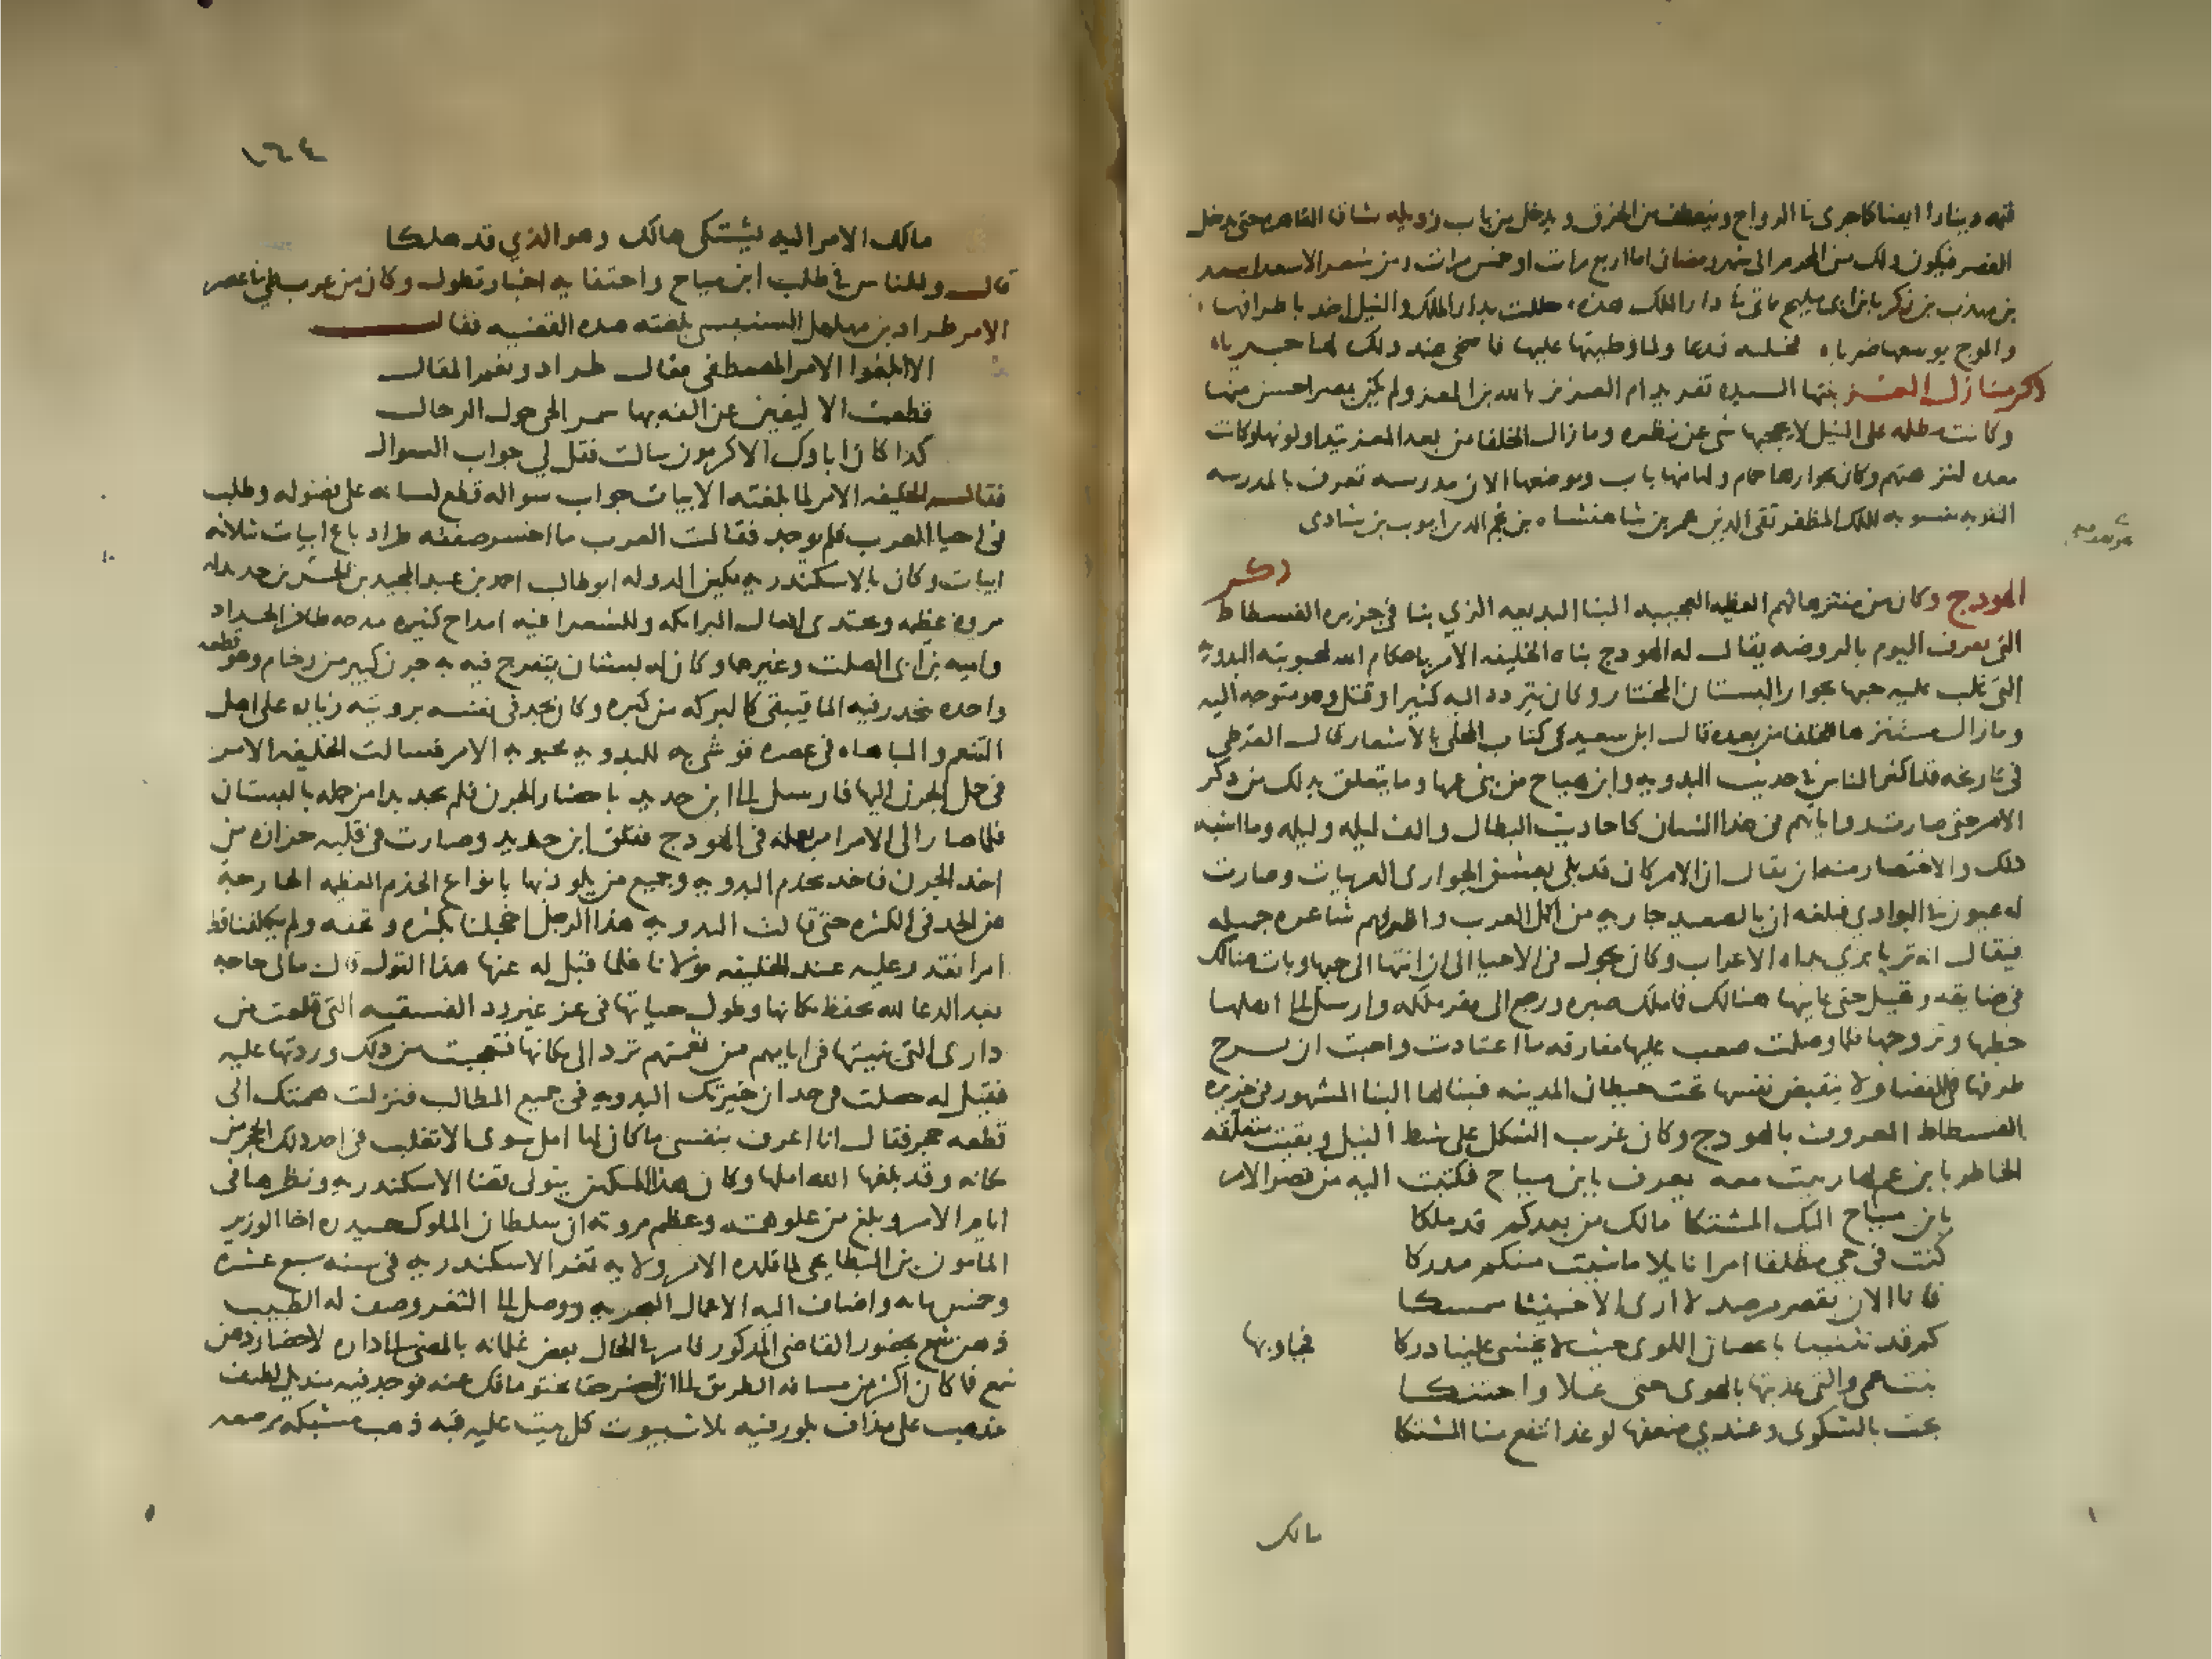 فيه دينارا ايضا كما جرى في الرواح وينعطف من الخرق ويدخل من باب زويله شاق القاهره حتى يدخل
القصر فيكون ذلك من المحرم الى شهر رمضان اما اربع مرات او خمس مرات ومن شعر الاسعد اسعد
بن مهذب بن زكريا بن ابى مليح مماتى في دار الملك هذه حللت بدار الملك والنيل اخذ باطرافها
والموج يوسعها ضرباه فخلته قدغا ولما وطيتها عليها فاضحى عند ذلك لها حرباه
ذكر منازل العز بنتها السيده تغريد ام العزيز بالله بن المعز ولم يكن بمصر احسن منها
وكانت مطله على النيل لا يحجبها شى عن نظره وما زال الخلفا من بعد المعز يتداولونها وكانت
معده لنزهتهم وكان بجوارها حمام ولها منها باب وموضعها الان مدرسه تعرف بالمدرسه
التقويه منسوبه للملك المظفر تقى الدين عمر بن شاهنشاه بن نجم الدين ايوب بن شادى
ذكر
الهودج وكان من منتزهاتهم العظيمه العجيبه البنا البديعه الزي بنا في جزيره الفسطاط
التى تعرف اليوم بالروضه يقال له الهودج بناه الخليفه الامر باحكام الله لمحبوبته البدويه
التى غلب عليه حبها بجوار البستان المختار وكان يتردد اليه كثيرا وقتل وهو متوجه اليه
وما زال متنزها للخلفا من بعده قال ابن سعيد في كتاب المحلى بالاشعار قال القرطي
في تاريخه قد اكثر الناس في حديث البدويه وابن مياح من بنى عمها وما يتعلق بذلك من ذكر
الامر حتى صارت رواياتهم في هذا الشان كاحاديث البطال والف ليله وليله وما اشبه
ذلك والاختصار منه ان يقال ان الامر كان قد بلي بعشق الجوارى العربيات وصارت
له عيون في البوادي فبلغه ان بالصعيد جاريه من اكمل العرب واظرفهم شاعره جميله
فيقال انه تزيا بزي بداه الاعراب وكان يجول فى الاحيا الى ان انتها الى حيها وبات هنالك
في ضايقه وتحيل حتى عاينها هنالك فما ملك صبره ورجع الى مقر ملكه وارسل الى اهلها
خطبها وتزوجها فلما وصلت صعب عليها مفارقه ما اعتادت واحبت ان تسرح
طرفها فى الفضا ولا ينقبض نفسها تحت حيطان المدينه فبنا لها البنا المشهور فى جزيره
الفسطاط المعروف بالهودج وكان غريب الشكل على شط النيل وبقيت متعلقه
الخاطر بابن عم لها ربيت معه يعرف بابن مياح فكتبت اليه من قصر الامر
يابن مياح اليك المشتكا مالك من بعدكم قد ملكا
كنت في حي مطلقا امرا نايلا ما شيت منكم مدركا
فانا الان بقصر موصد لا ارى الا خبيثا ممسكا
كم قد تثنينا باغصان اللوى حيث لا يخشى علينا دركا فجاوبها
بنت عمي والتى غذيتها بالهوى حتى علا واحتنكا
بحت بالشكوى وعندي ضعفها لو غدا ينفع منا المشتكا
مالك
١٦٤
مالك الامر اليه يشتكى هالك وهو الذي قد هلكا
قال وللناس فى طلب ابن مياح واختفايه اخبار تطول وكان من عرب طي فى عصر
الامر طراد بن مهلهل السنبسى بلغته هذه القضيه فقال
الا ابلغوا الامر المصطفى مقال طراد ونعم المقال
قطعت الاليفين عن الفه بها سمر الحى حول الرحال
كذا كان اباوك الاكرمون سالت فقل لي جواب السوال
فقال الخليفه الامر لما بلغته الابيات جواب سواله قطع لسانه على فضوله وطلب
فى احيا العرب فلم يوجد فقالت العرب ما اخسر صفقه طراد باع ابيات ثلاثه
ابيات وكان بالاسكندريه مكين الدوله ابو طالب احمد بن عبد المجيد بن احمد بن حديد له
مروه عظيمه ويحتذى افعال البرامكه وللشعرا فيه امداح كثيره مدحه ظافر الحداد
واميه بن ابى الصلت وغيرهما وكان له بستان يتفرج فيه به جرن كبير من رخام وهو قطعه
واحده ينحدر فيه الما فيبقى كالبركه من كبره وكان يجد فى نفسه برويته زياده على اهل
التنعم والمباهاه فى عصره فوشي به للبدويه محبوبه الامر فسالت الخليفه الامر
فى حمل الجرن اليها فارسل الى ابن حديد باحضار الجرن فلم يجد بدا من حمله بالبستان
فلما صار الى الامر امر بعمله فى الهودج فقلق ابن حديد وصارت فى قلبه حزازه من
اخذ الجرن فاخذ يخدم البدويه وجميع من يلوذ بها بانواع الخدم العظيمه الخارجه
عن الحد فى الكثره حتى قالت البدويه هذا الرجل اخجلنا بكثره تحفه ولم يكلفنا قط
امرا نقدر عليه عند الخليفه مولانا فلما قيل له عنها هذا القول قال مالى حاجه
بعد الدعا لله بحفظ مكانها وطول حياتها في عز غير رد الفسقيه التى قلعت من
دارى التى بنيتها فى ايامهم من نعمتهم ترد الى مكانها فتعجبت من ذلك وردتها عليه
فقيل له حصلت فى حد ان خيرتك البدويه فى جميع المطالب فنزلت همتك الى
قطعه حجر فقال انا اعرف بنفسى ما كان لها امل سوى الا تغلب فى اخذ ذلك الحجر من
مكانه وقد بلغها الله املها وكان هذا المكين يتولى قضا الاسكندريه ونظرها فى
ايام الامر وبلغ من علو همته وعظم مروته ان سلطان الملوك حيدره اخا الوزير
المامون بن البطايحى لما قلده الامر ولايه ثغر الاسكندريه فى سنه سبع عشره
وخمس مايه واضاف اليه الاعمال البحريه ووصل الى الثغر وصف له الطبيب
دهن شمع بحضور القاضى المذكور فامر في الحال بعض غلمانه بالمضى الى داره لاحضار دهن
شمع فما كان اكثر من مسافه الطريق الى ان احضر حقا مختوما فك عنه فوجد فيه منديل لطيف
مذهب على مداف بلور فيه ثلاث بيوت كل بيت عليه قبه ذهب مشبكه مرصعه